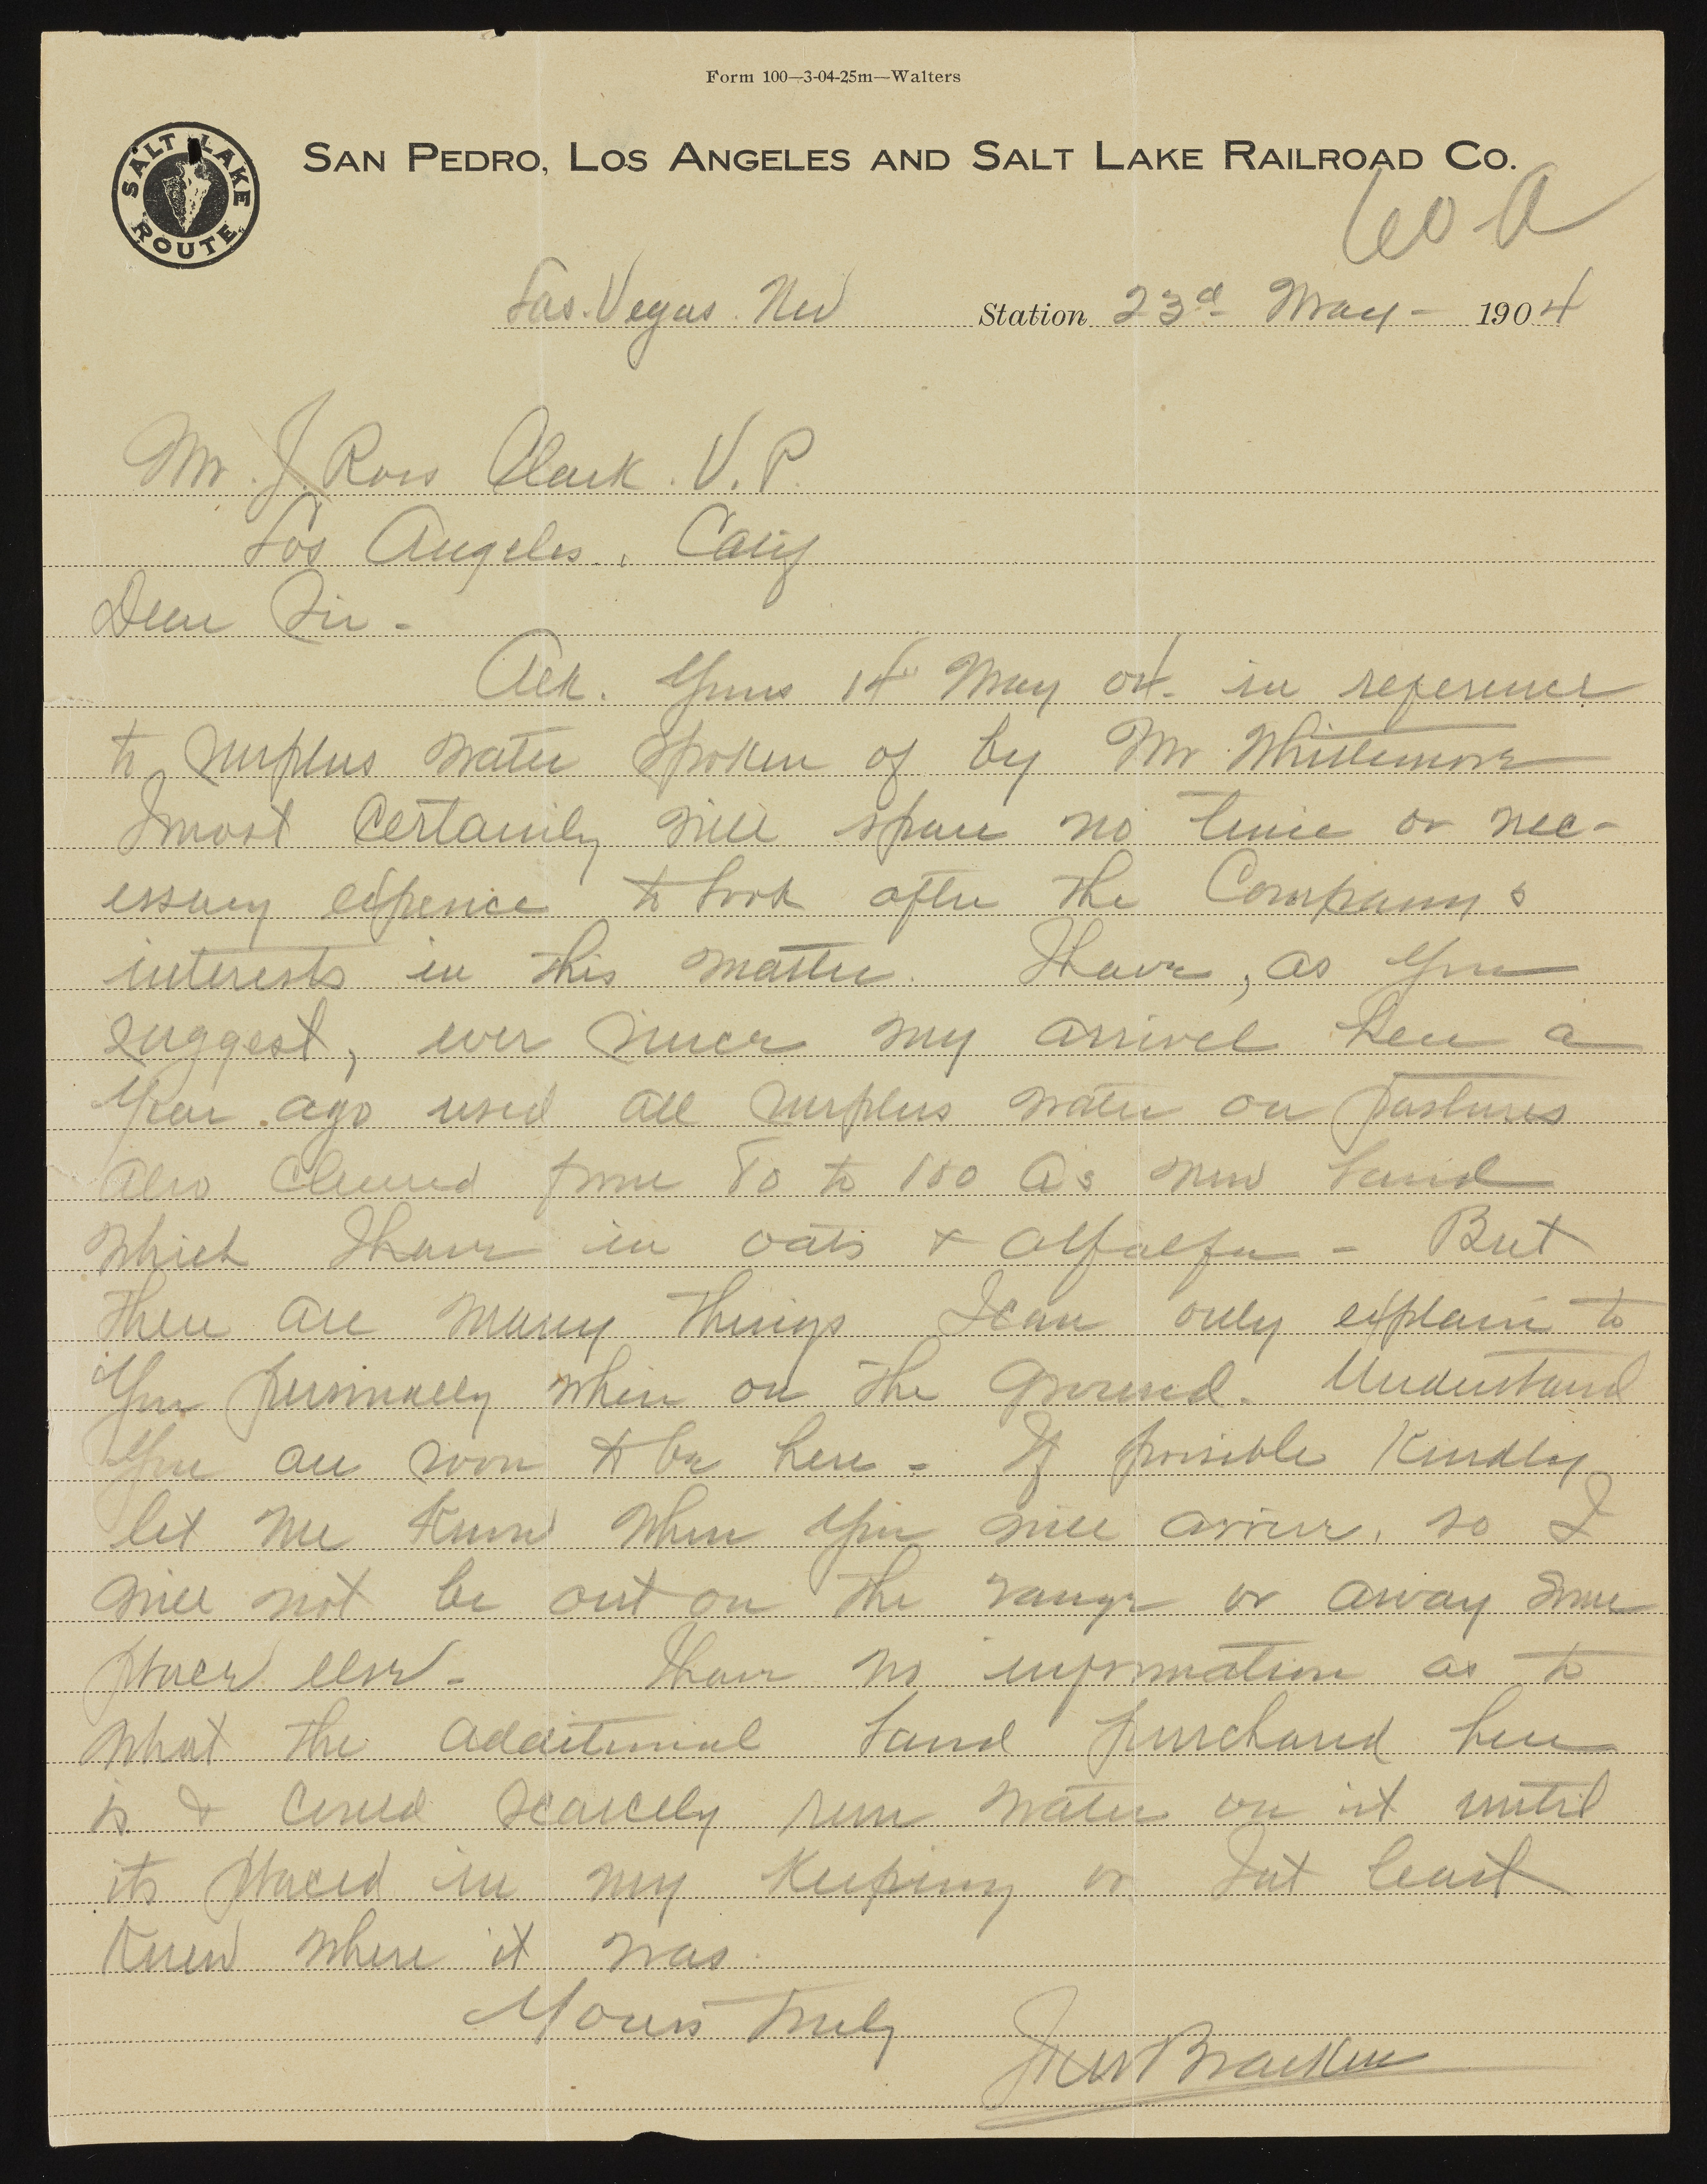 Form 100—3-04-25m—Walters
SALT LAKE ROUTE
SAN PEDRO, LOS ANGELES AND SALT LAKE RAILROAD CO.
60 A
Las. Vegas. Nev Station 23d May - 1904
Mr. J. Ross Clark. V. P.
Los Angeles, Calif
Dear Sir -
Ack. Yours 14" May 04. in reference
to surplus water spoken of by Mr Whittemore
I most certainly will spare no time or nec-
essary expence to look after the Companys
interests in this matter. I have, as you
suggest, ever since my arrivel here a
year ago used all surplus water on pastures
also cleared from 80 to 100 A's new land
which I have in oats & alfalfa - But
there are many things I can only explain to
you personally when on the ground. Understand
you are soon to be here - If possible kindly
let me know when you will arrive, so I
will not be out on the range or away some
place else - I have no information as to
what the additional land purchased here
is & could scarcely run water on it until
its placed in my keeping or I at least
knew where it was.
Yours truly
Walter Bracken